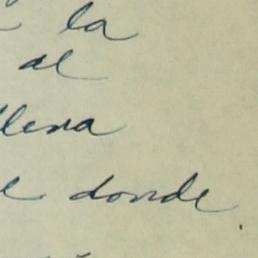 la
al
llena
donde.